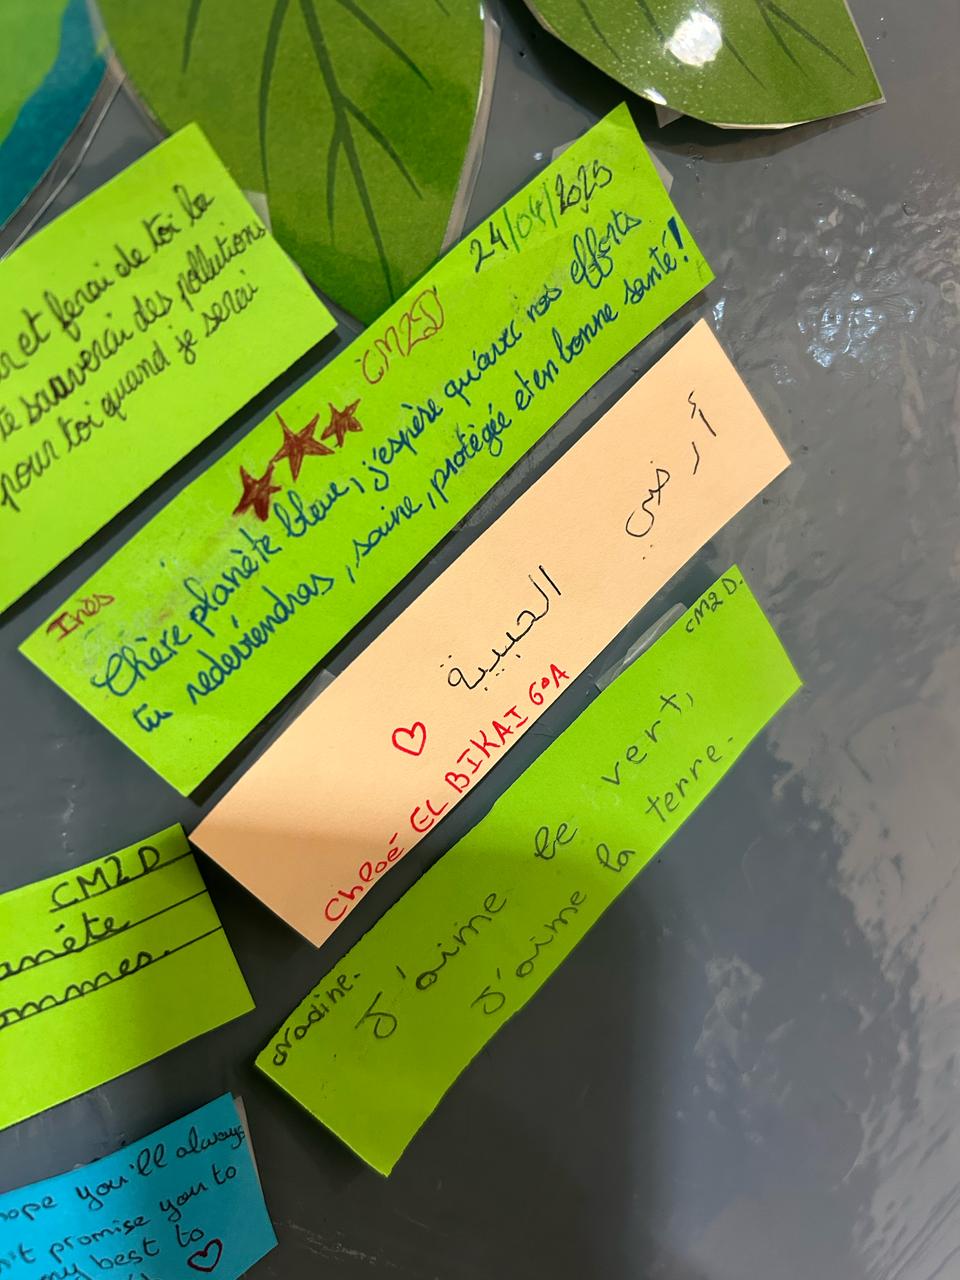 et ferai de toi la
te sauverai des pollutions
pour toi quand je serai
24/04/2025
CM2D
Inès
Chère planète bleue, j'espère qu'avec nos efforts
tu redeviendras, saine, protégée et en bonne santé!
أرضي الحبيبة
Chloé EL BIKAI 6°A
CM2D.
Nadine.
J'aime le vert,
J'aime la terre.
CM2D
you'll always
promise you to
my best to